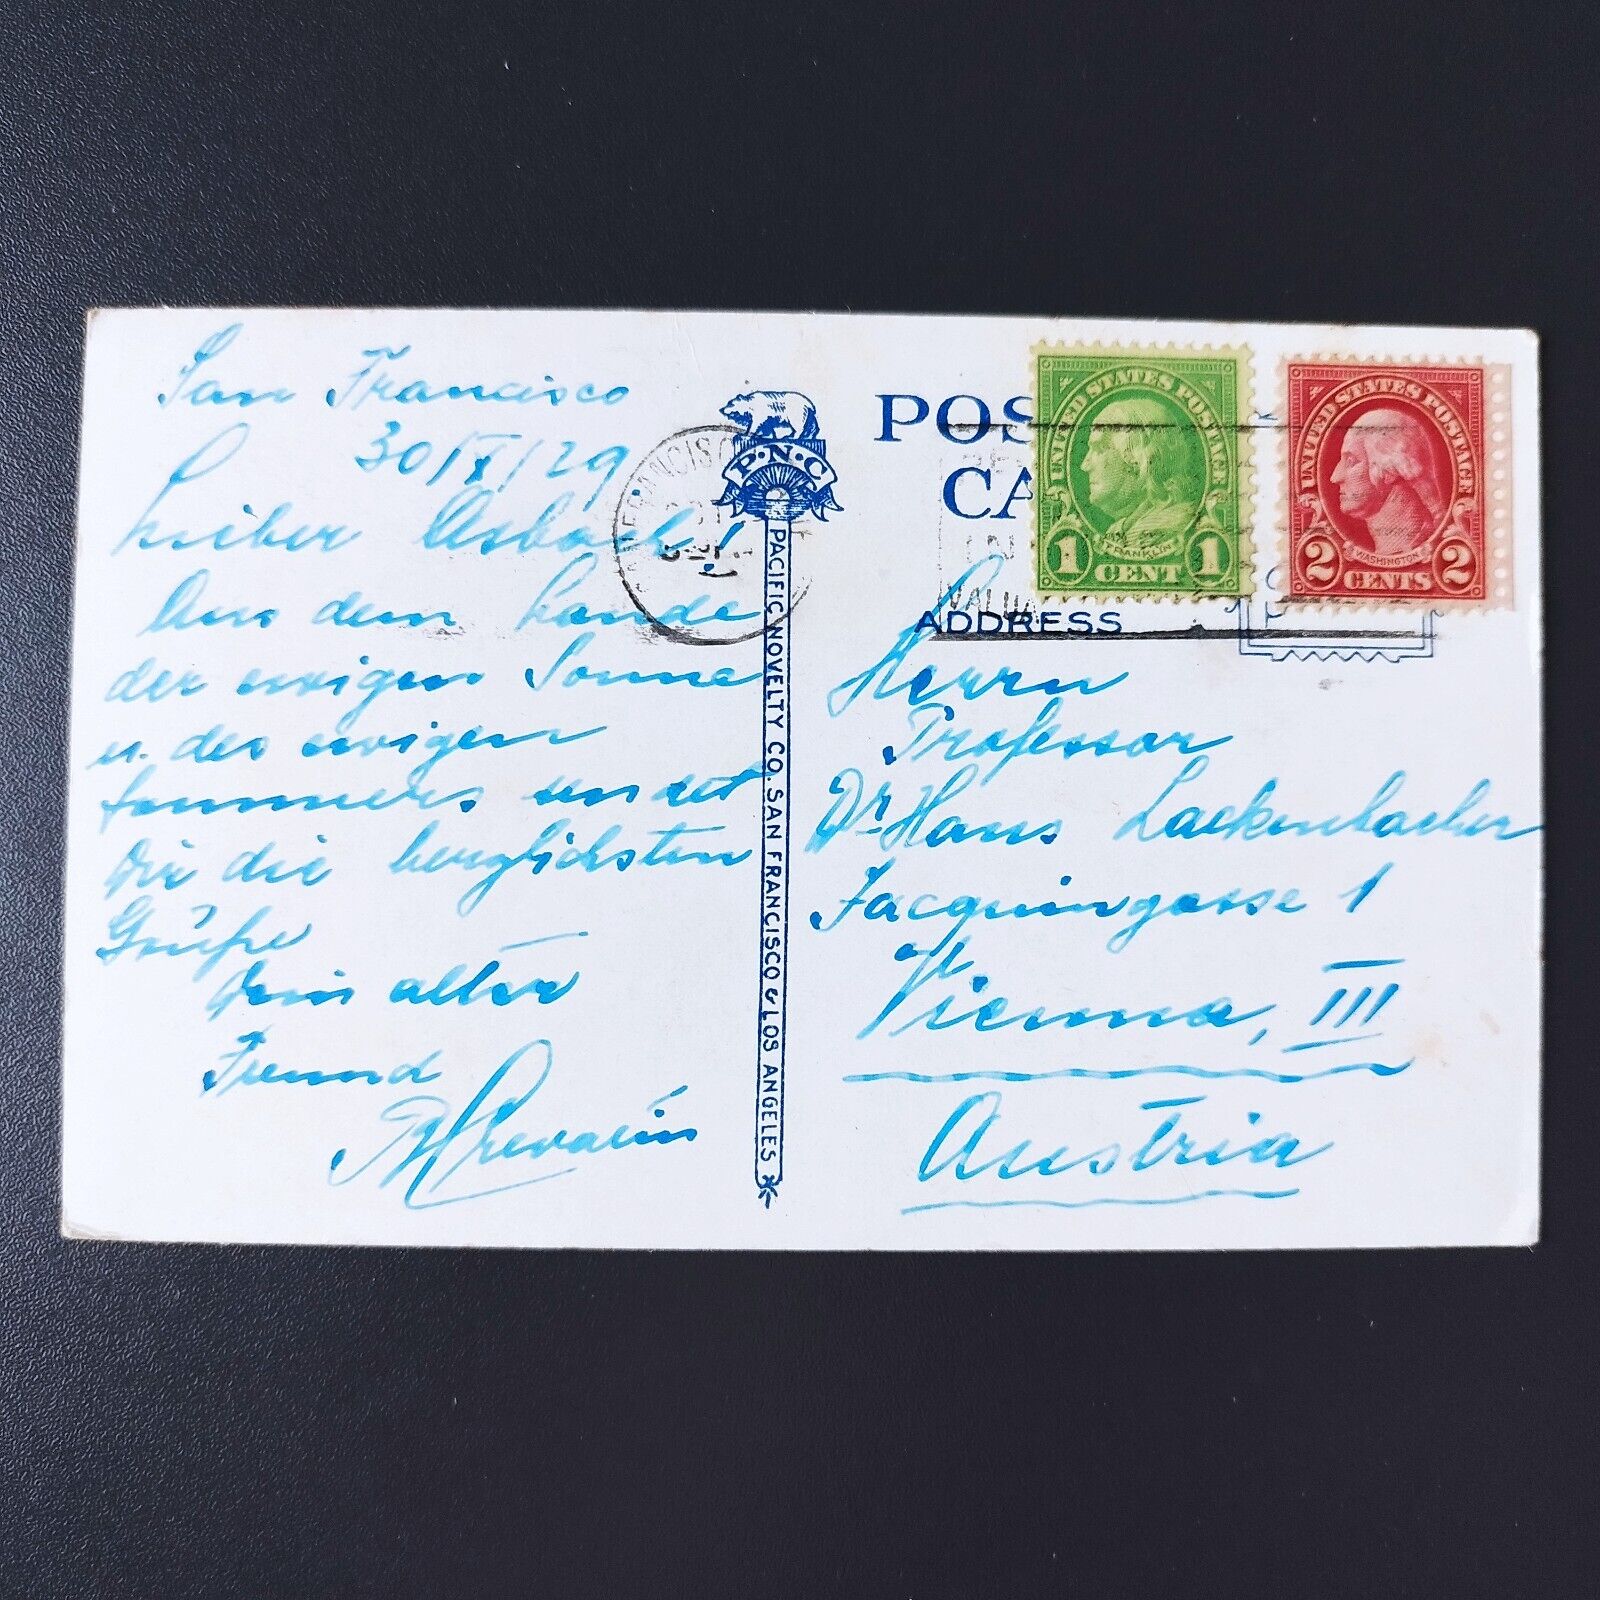 San Francisco
30/X/29
Lieber Asbach!
Aus dem Lande
der ewigen Sonne
u. des ewigen
Sommers sendet
Dir die herzlichsten
Grüße
Dein alter
Freund
POS
CA
P·N·C
PACIFIC NOVELTY CO. SAN FRANCISCO & LOS ANGELES
UNITED STATES POSTAGE
FRANKLIN
1 CENT 1
UNITED STATES POSTAGE
WASHINGTON
2 CENTS 2
FRANCISCO
ADDRESS
Herrn
Professor
Dr. Hans Lackenbacher
Jacquingasse 1
Vienna, III
Austria